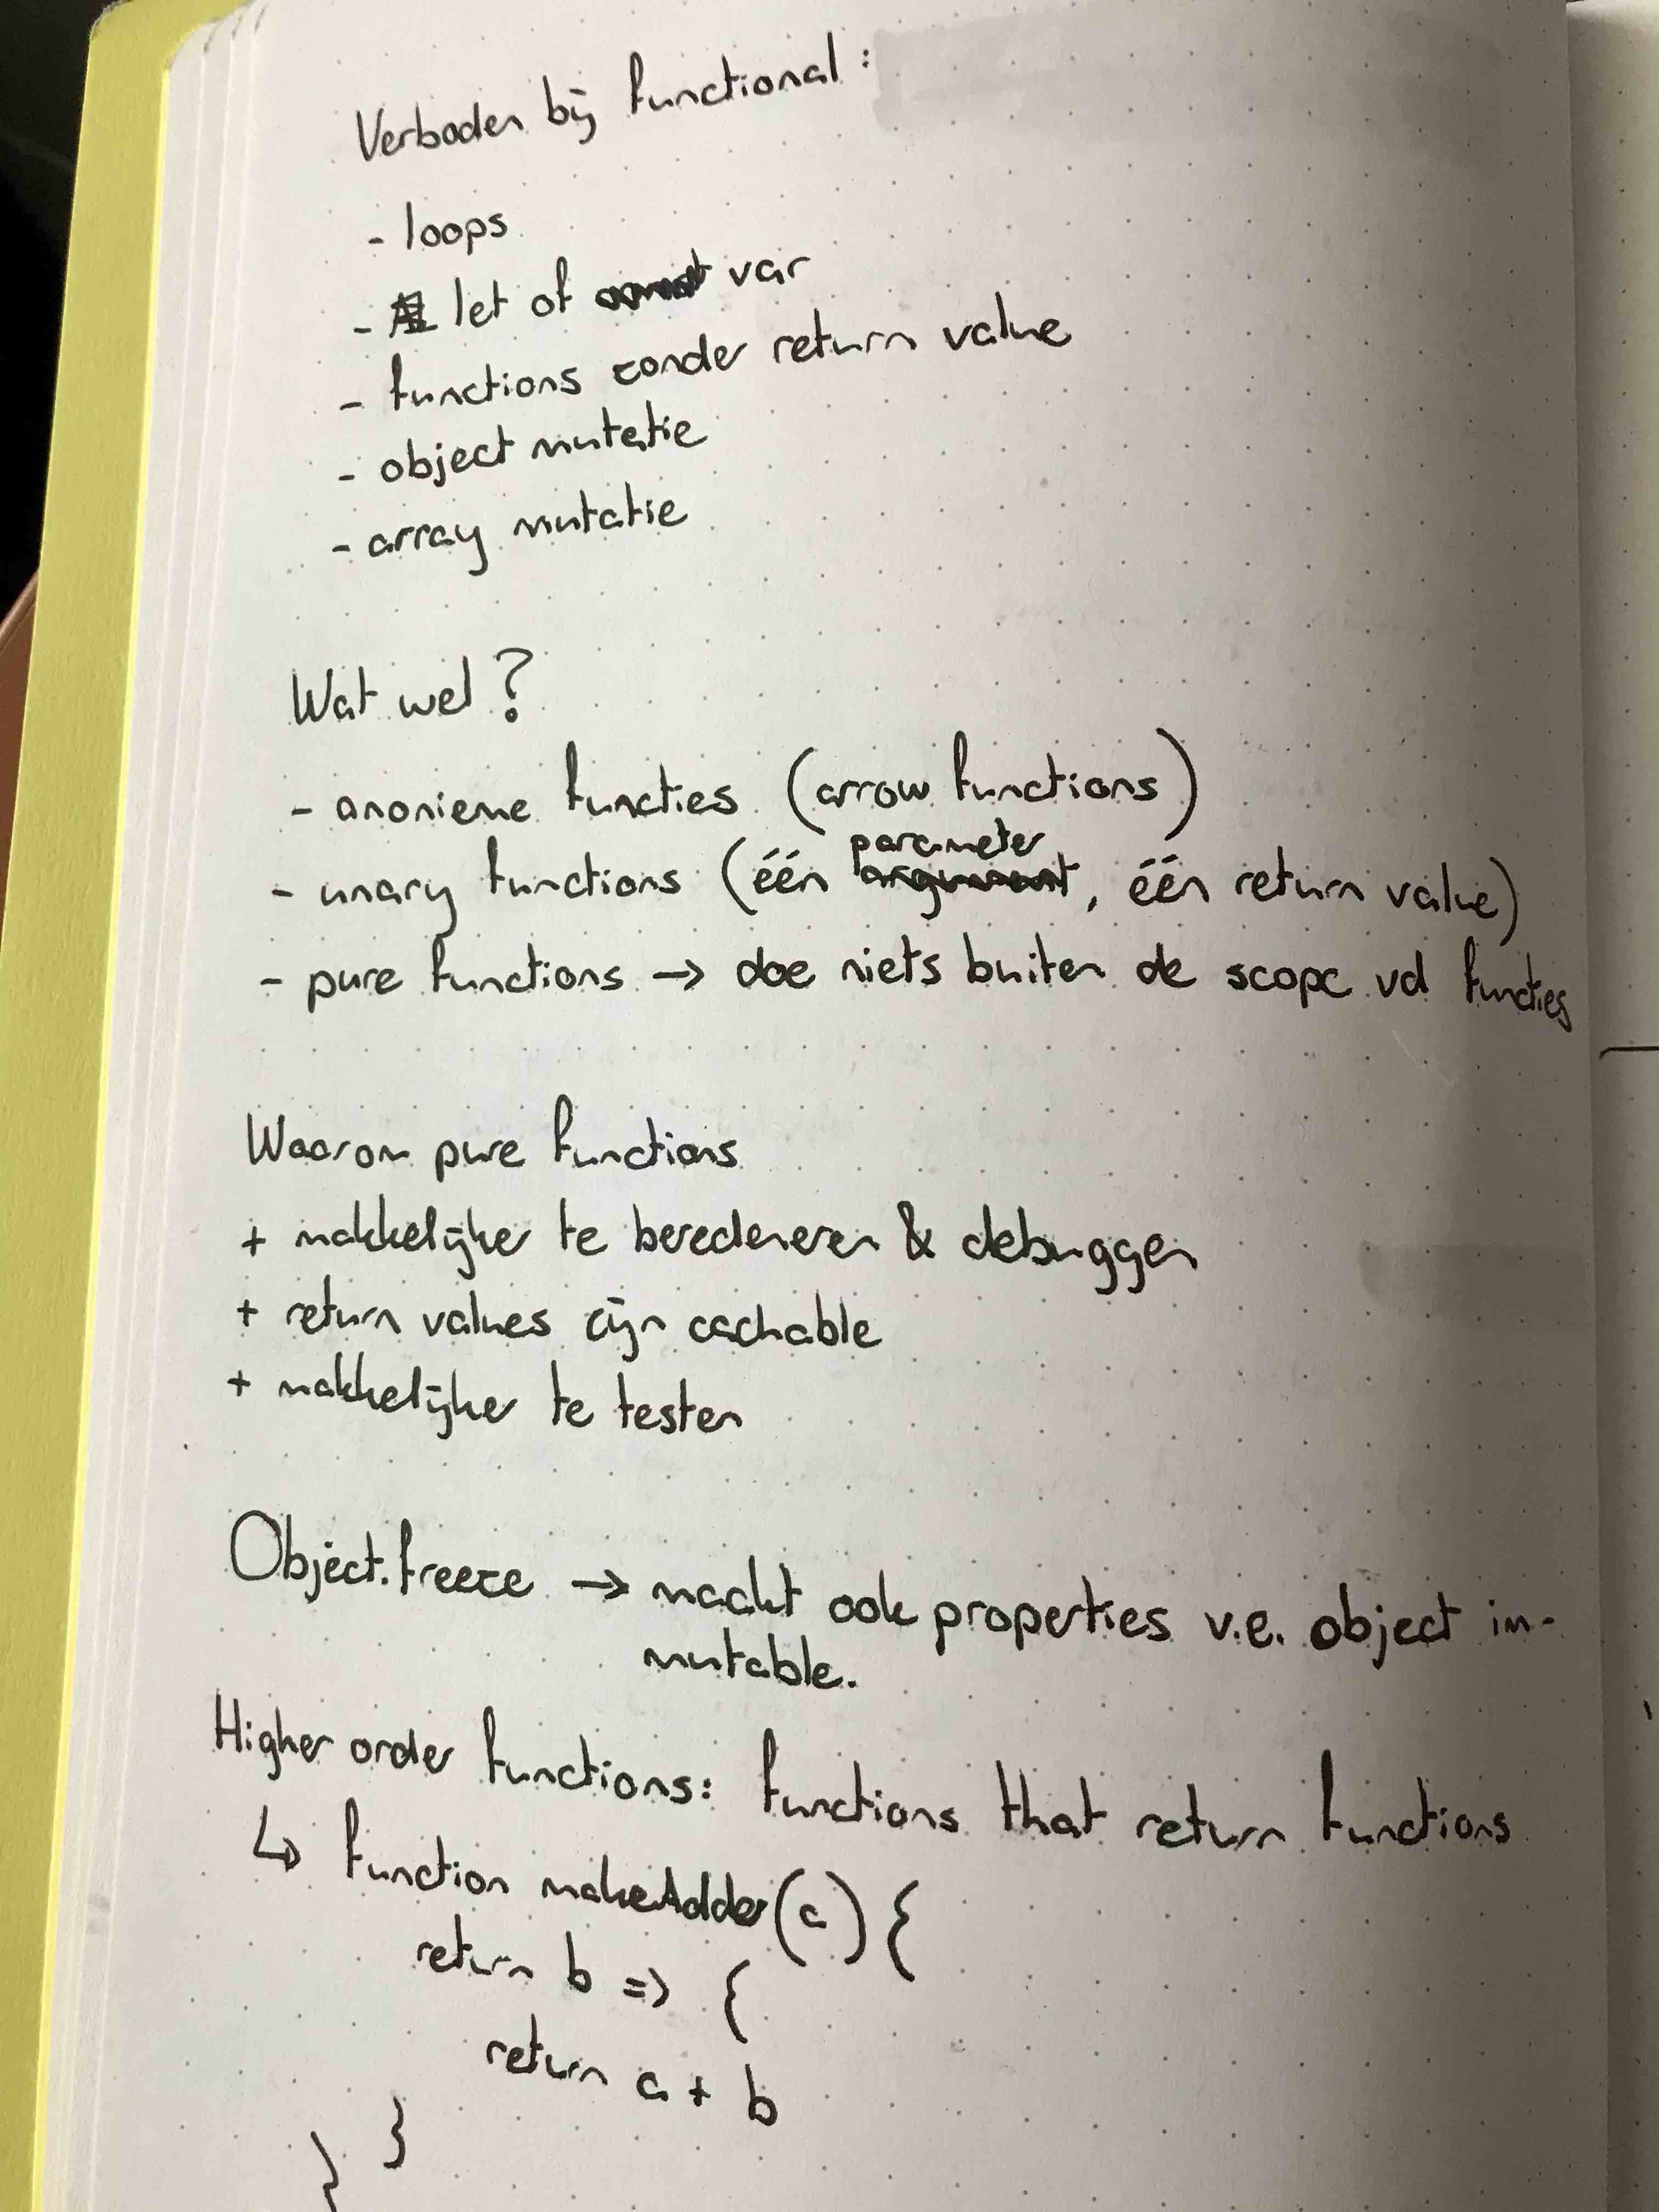 Verboden bij functional:
- loops
- let of var
- functions zonder return value
- object mutatie
- array mutatie
Wat wel?
- anonieme functies (arrow functions)
parameter
- unary functions (één argument, één return value)
- pure functions → doe niets buiten de scope vd functies
Waarom pure functions
+ makkelijker te beredeneren & debuggen
+ return values zijn cachable
+ makkelijker te testen
Object.freeze → maakt ook properties v.e. object im-
mutable.
Higher order functions: functions that return functions
↳ function makeAdder(a) {
return b => {
return a + b
}
}